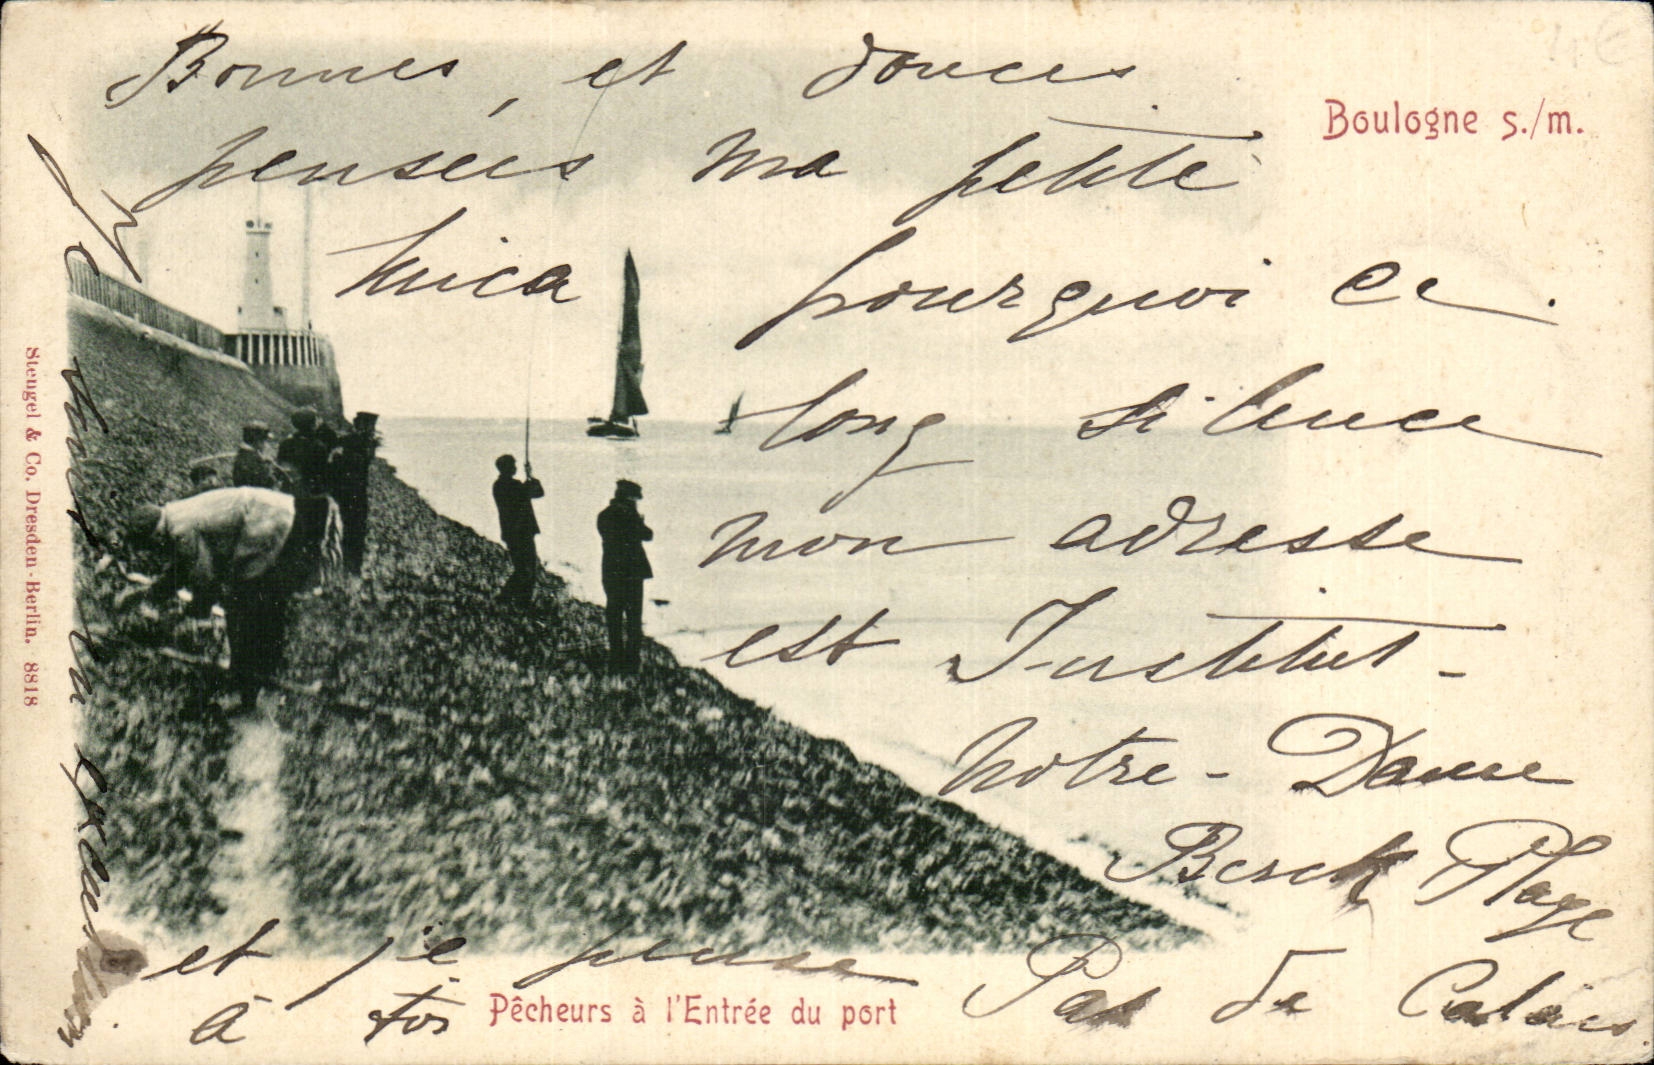 Bonnes et douces
pensées ma petite
pourquoi ce
long silence
mon adresse
est Institut-
notre-Dame
Berck Plage
Pas de Calais
Je suis en excursion
et je pense
à toi
Boulogne s./m.
Pêcheurs à l'Entrée du port
Stengel & Co. Dresden-Berlin. 8818
4€